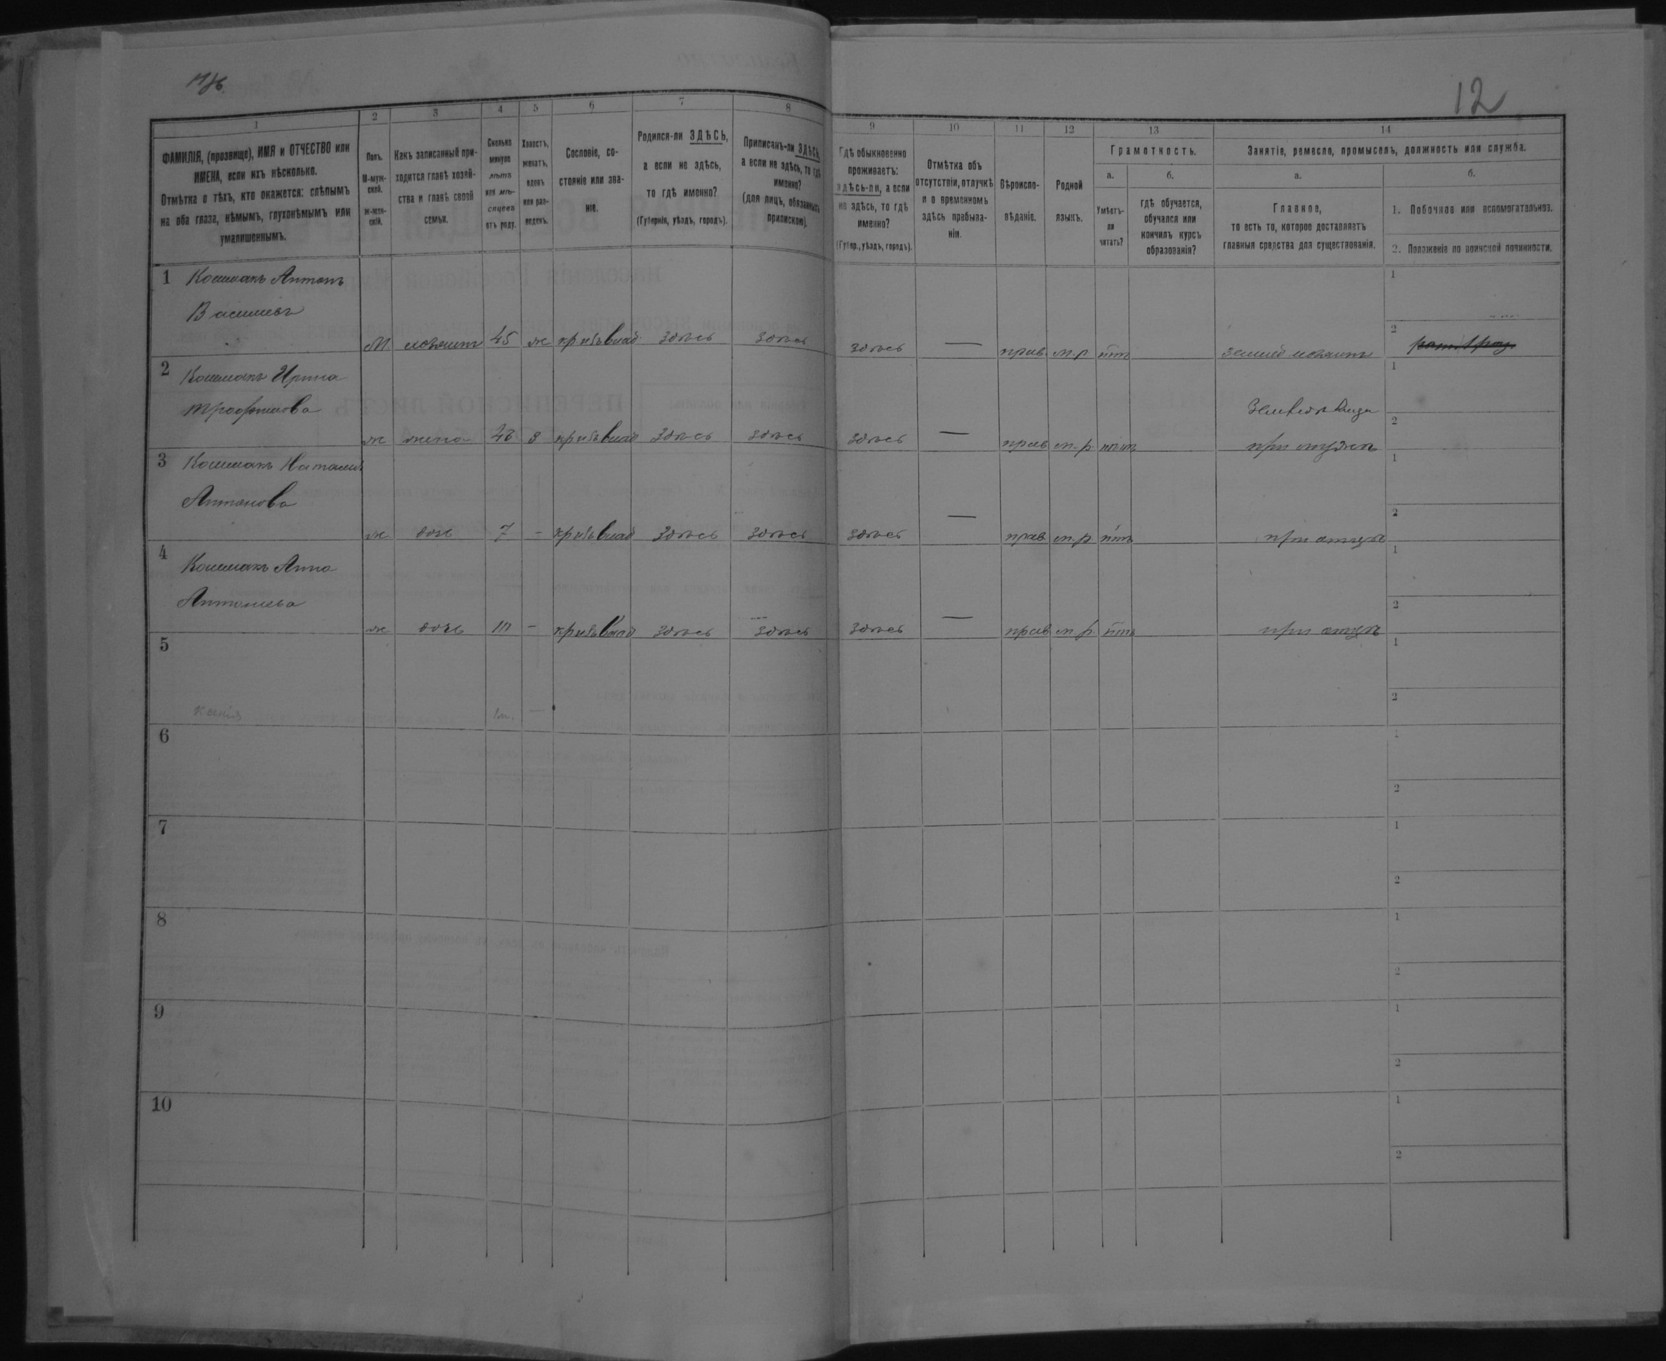 12
1 2 3 4 5 6 7 8 9 10 11 12 13 14
ФАМИЛІЯ, (прозвище), ИМЯ и ОТЧЕСТВО или
ИМЕНА, если ихъ нѣсколько.
Отмѣтка о тѣхъ, кто окажется: слѣпымъ
на оба глаза, нѣмымъ, глухонѣмымъ или
умалишеннымъ.
Полъ.
М-муж-
ской.
ж-жен-
скій.
Какъ записанный при-
ходится главѣ хозяй-
ства и главѣ своей
семьи.
Сколько
минуло
лѣтъ
или мѣ-
сяцевъ
отъ роду.
Холостъ,
женатъ,
вдовъ
или раз-
веденъ.
Сословіе, со-
стояніе или зва-
ніе.
Родился-ли ЗДѢСЬ,
а если не здѣсь,
то гдѣ именно?
(Губернія, уѣздъ, городъ).
Приписанъ-ли ЗДѢСЬ,
а если не здѣсь, то гдѣ
именно?
(для лицъ, обязанныхъ
припискою).
Гдѣ обыкновенно
проживаетъ:
здѣсь-ли, а если
не здѣсь, то гдѣ
именно?
(Губер., уѣздъ, городъ).
Отмѣтка объ
отсутствіи, отлучкѣ
и о временномъ
здѣсь пребыва-
ніи.
Вѣроиспо-
вѣданіе.
Родной
языкъ.
Грамотность.
а.
Умѣетъ-
ли
читать?
б.
гдѣ обучается,
обучался или
кончилъ курсъ
образованія?
Занятіе, ремесло, промыселъ, должность или служба.
а.
Главное,
то есть то, которое доставляетъ
главныя средства для существованія.
б.
1. Побочное или вспомогательное.
2. Положеніе по воинской повинности.
1 Кошмакъ Антонъ
М хозяинъ 45 ж здѣсь здѣсь здѣсь — прав м.р нѣтъ
2 Кошмакъ Ирина
Трофимова
ж жена з здѣсь здѣсь здѣсь — прав м.р нѣтъ при мужѣ
3 Кошмакъ Наталія
Антонова
ж дочь 7 - здѣсь здѣсь здѣсь — прав м.р нѣтъ при отцѣ
4 Кошмакъ Анна
ж дочь - здѣсь здѣсь здѣсь — прав м.р нѣтъ при отцѣ
5
6
7
8
9
10